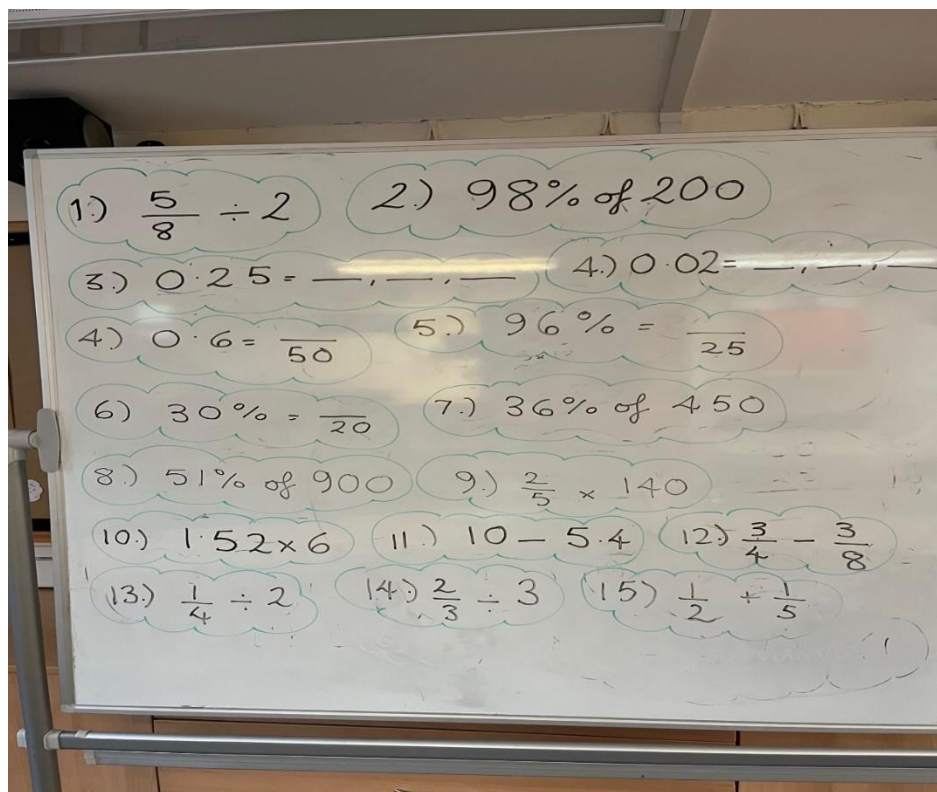 1.) 5/8 ÷ 2 2.) 98% of 200
3.) 0.25 = __, __, __ 4.) 0.02 = __, __, __
4.) 0.6 = __/50 5.) 96% = __/25
6) 30% = __/20 7.) 36% of 450
8.) 51% of 900 9.) 2/5 × 140
10.) 1.52 × 6 11.) 10 - 5.4 12) 3/4 - 3/8
13.) 1/4 ÷ 2 14.) 2/3 ÷ 3 15) 1/2 + 1/5